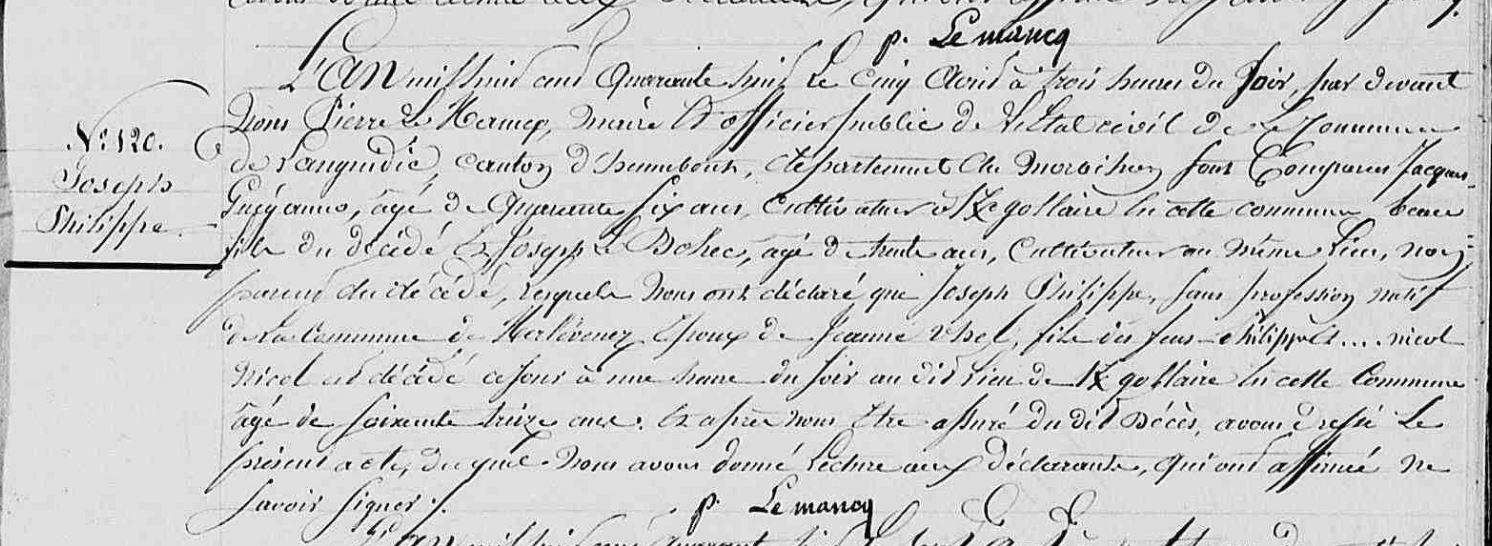 p. Le mancq
L'an mil huit cent quarante huit le cinq avril à trois heures du soir, par devant
Nous Pierre Le maire et officier public de l'état civil de la Commune
de Languidic, canton d'hennebont, département du morbihan sont Comparus Jacques
âgé de quarante six ans, Cultivateur à K/gollaire en cette commune beau
fils du décédé et Joseph Le Bohec, âgé de trente ans, Cultivateur au même lieu, non
parent du décédé, lesquels nous ont déclaré que Joseph Philippe, sans profession natif
de la Commune de Merlévenez, époux de Jeanne fils des feus Philippe et .... nicol
Nicol est décédé ce jour à une heure du soir au dit lieu de K/gollaire en cette Commune
âgé de soixante treize ans. Et après nous être assuré du dit Décès, avons dressé le
présent acte, duquel nous avons donné lecture aux déclarants, qui ont affirmé ne
savoir signer ./.
p. Le mancq
N° 120.
Joseph
Philippe.